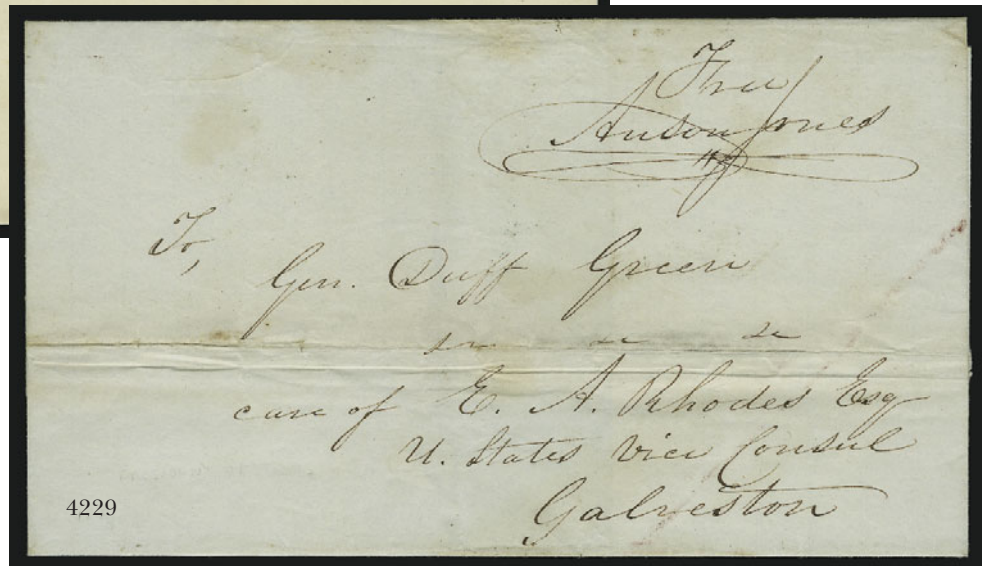 Free
Anson Jones
To,
Gen. Duff Green
&c &c &c
care of E. A. Rhodes Esq
U. States Vice Consul
Galveston
4229